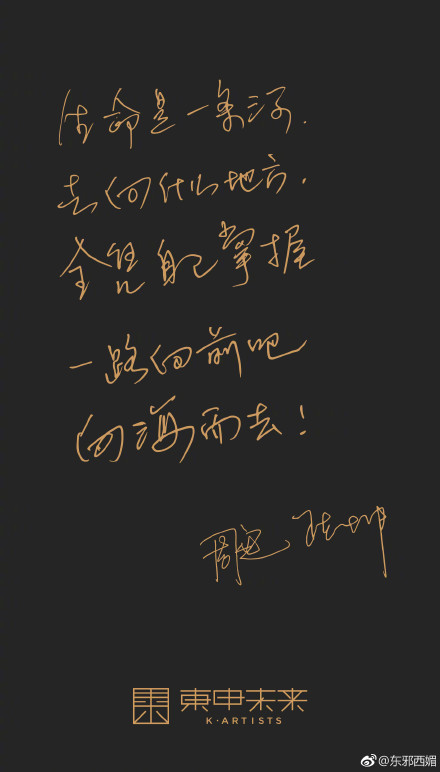 生命是一条河.
去向什么地方,
全凭自己掌握
一路向前吧
向海而去!
周迅、陈坤
東申未来
K·ARTISTS
@东邪西媚